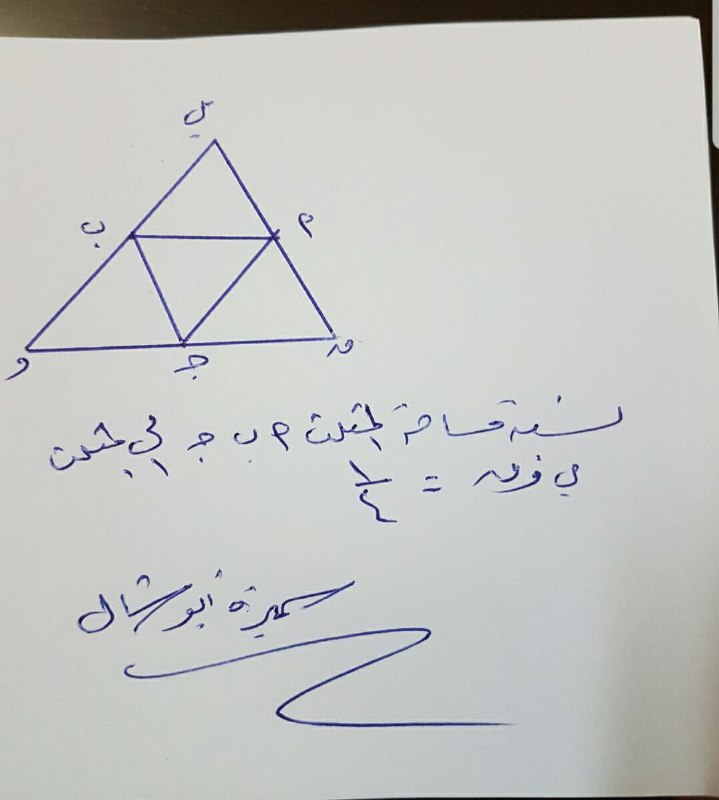 ي
ب
م
و
جـ
هـ
نسبة مساحة المثلث م ب جـ إلى المثلث
ي و هـ = ١/٤
سميرة أبو شال